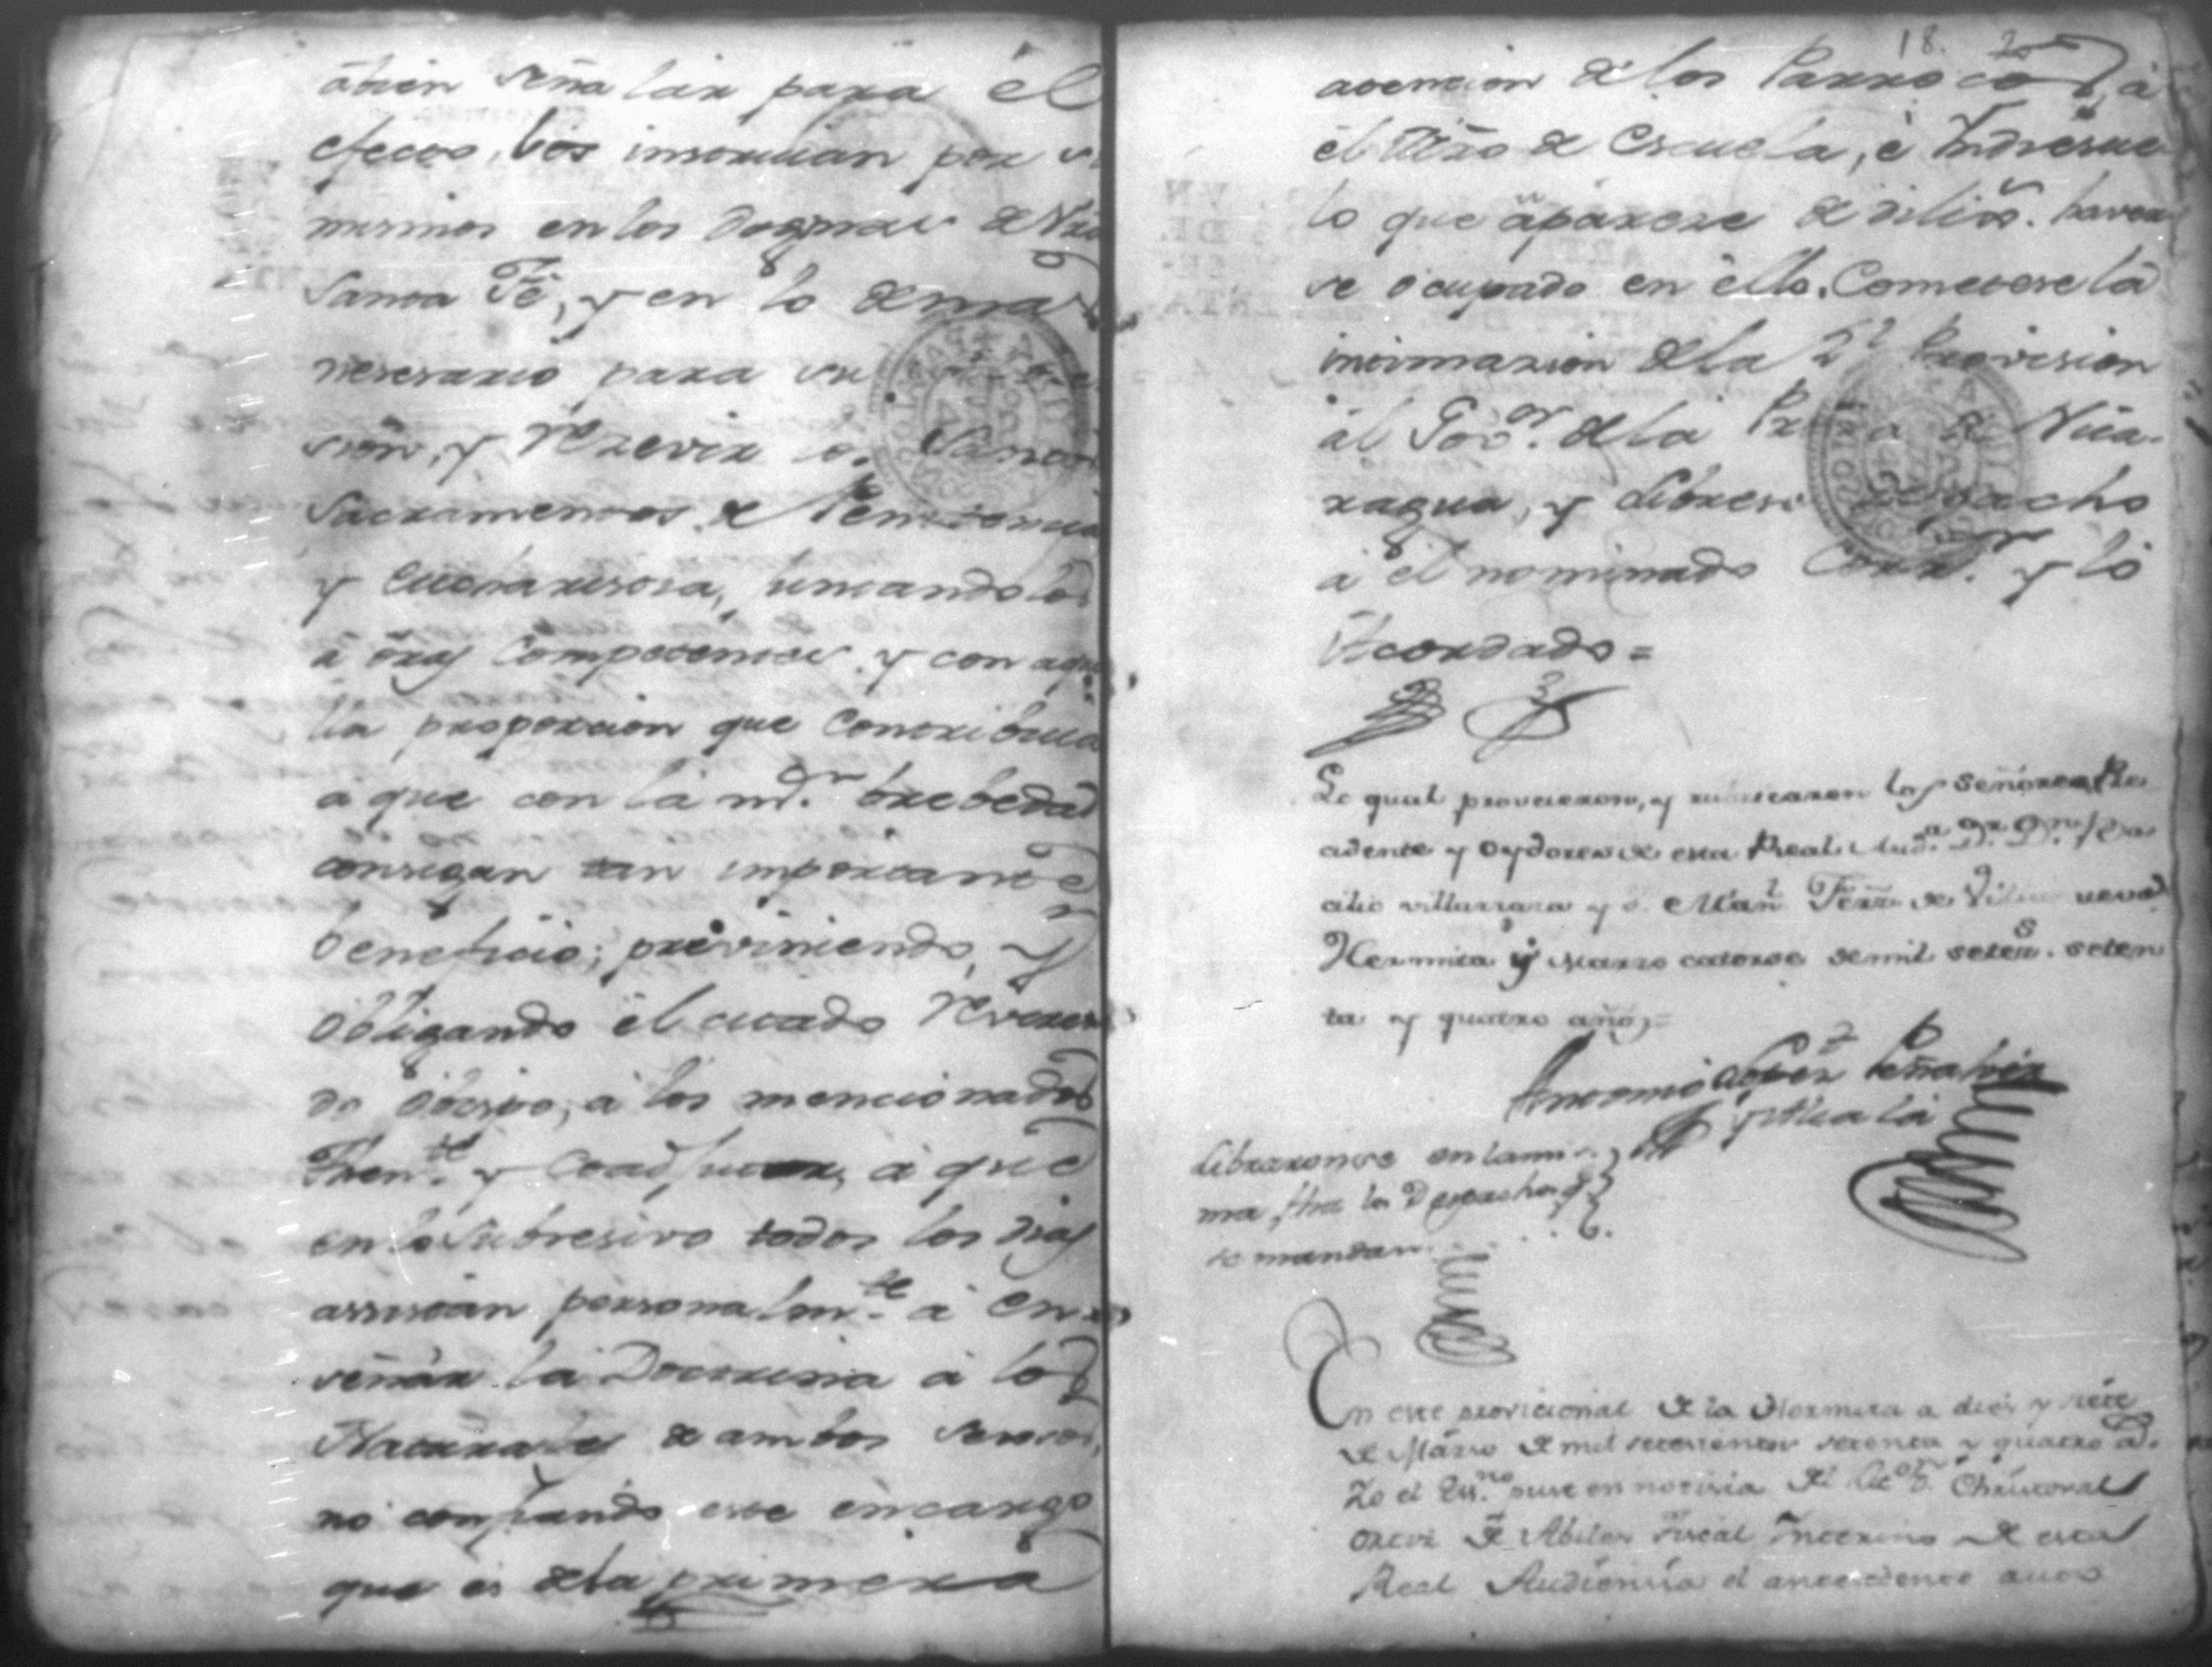 átien señalar para él
efecto, los instruian por si
mismos en los Dogmas de Nra
Santa Fé, y en lo demas
nesesario para su
sion, y resevir los Santos
Sacramentos de Penitencia
y Eucharistia, juntandolos
á oras Competentes y con aque
lla proporcion que Contribuia
á que con la mor. brebedad
consigan tan importante
beneficio; previniendo, y
obligando él citado Reveren
do Obispo, á los mencionados
Then.te y Coadjutor, á que
en lo subcesivo todos los dias
assistan personalm.te á en-
señar la Doctrina á los
Naturales de ambos sexsos,
no confiando este encargo
que es de la primera
18. 20
atencion de los Parrocos, á
él Mro de Escuela, é Indiesue
lo que aparese de dilixs. haver
se ocupado en ello. Cometese la
intimasion de la Rl Provision
al Govor. de la Prova de Nica-
ragua, y Librese Despacho
á él nominado Corror. y lo
Acordado =
Lo qual proveieron, y rubricaron los señores Pre
cidente y Oydores de esta Real Auda. Dr. Dn.
cilio villarrasa y d. Manl. Ferrz de Villanueva
Hermita y Marzo catorse de mil setess. seten
ta y quatro años=
Antonio Lopez Peñalver
y Alcalá
Libraronse en la mis-
ma fha los Despachos q
se mandan.
En este provicional de la Hermita a dies y siete
de Marzo de mil setecientos setenta y quatro as.
Yo el Essno. puse en notisia del Licdo. Dn. Christoval
Ortis de Abiles Fiscal Interino de esta
Real Audiencia el antecedente auto